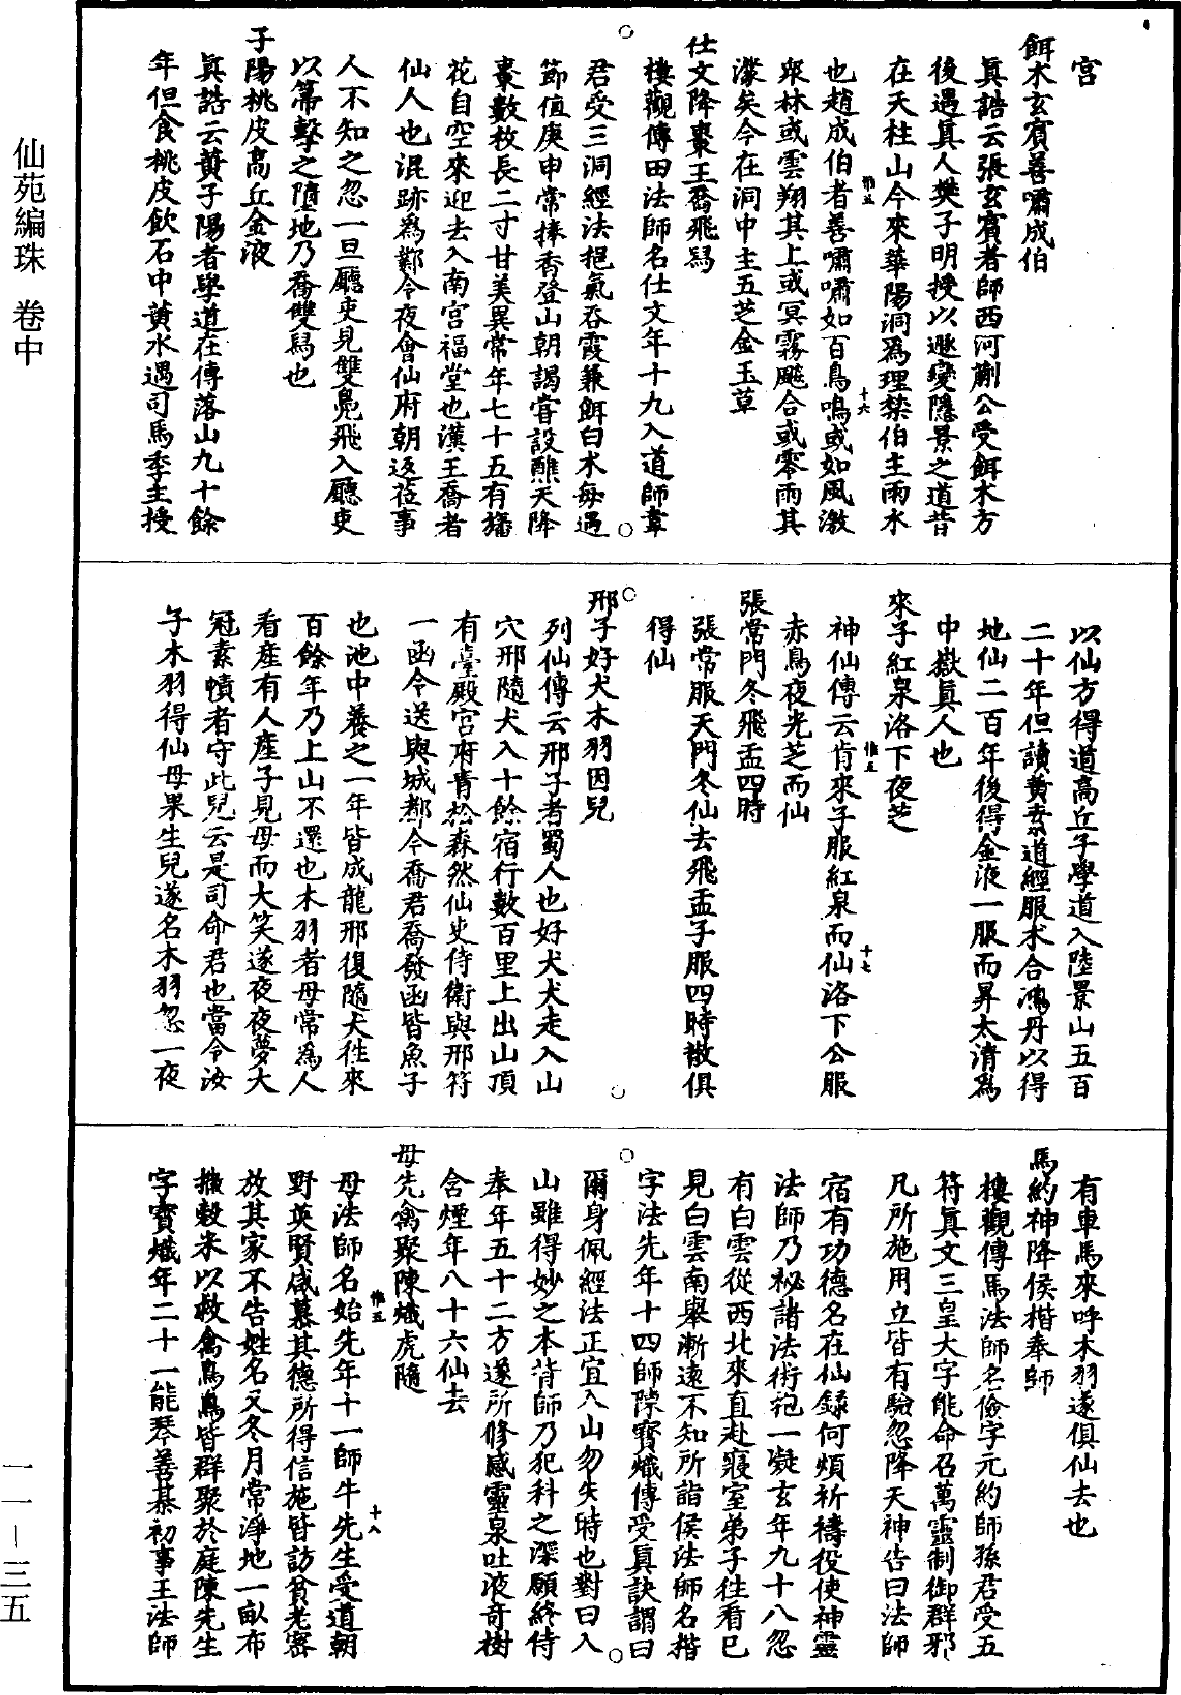 宮
餌朮玄賓善嘯成伯
真誥云張玄賓者師西河蒯公受餌朮方
後遇真人樊子明授以遯變隱景之道昔
在天柱山今來華陽洞為理禁伯主雨水
也趙成伯者善嘯嘯如百鳥鳴或如風激
衆林或雲翔其上或冥霧飈合或零雨其
濛矣今在洞中主五芝金玉草
仕文降棗王喬飛舄
樓觀傳田法師名仕文年十九入道師韋
君受三洞經法挹氣吞霞兼餌白朮每遇
節值庚申常捧香登山朝謁嘗設醮天降
棗數枚長二寸甘美異常年七十五有旛
花自空來迎去入南宮福堂也漢王喬者
仙人也混跡為鄴令夜會仙府朝返莅事
人不知之忽一旦廳吏見雙鳧飛入廳吏
以箒擊之墮地乃喬雙舄也
子陽桃皮高丘金液
真誥云黃子陽者學道在傳落山九十餘
年但食桃皮飲石中黃水遇司馬季主授
以仙方得道高丘子學道入陸景山五百
二十年但讀黃素道經服朮合鴻丹以得
地仙二百年後得金液一服而昇太清為
中嶽真人也
來子紅泉洛下夜芝
神仙傳云肯來子服紅泉而仙洛下公服
赤鳥夜光芝而仙
張常門冬飛盂四時
張常服天門冬仙去飛盂子服四時散俱
得仙
邢子好犬木羽因兒
列仙傳云邢子者蜀人也好犬犬走入山
穴邢隨犬入十餘宿行數百里上出山頂
有臺殿宮府青松森然仙吏侍衛與邢符
一函令送與城都令喬君喬發函皆魚子
也池中養之一年皆成龍邢復隨犬往來
百餘年乃上山不還也木羽者母常為人
看產有人產子見母而大笑遂夜夜夢大
冠素幘者守此兒云是司命君也當令汝
子木羽得仙母果生兒遂名木羽忽一夜
有車馬來呼木羽遂俱仙去也
馬約神降侯楷奉師
樓觀傳馬法師名儉字元約師孫君受五
符真文三皇大字能命召萬靈制御群邪
凡所施用立皆有驗忽降天神告曰法師
宿有功德名在仙錄何煩祈禱役使神靈
法師乃祕諸法術抱一凝玄年九十八忽
有白雲從西北來直赴寢室弟子往看已
見白雲南舉漸遠不知所詣侯法師名楷
字法先年十四師陳寶熾傳受真訣謂曰
爾身佩經法正宜入山勿失時也對曰入
山雖得妙之本背師乃犯科之深願終侍
奉年五十二方遂所修感靈泉吐液奇樹
含煙年八十六仙去
母先禽聚陳熾虎隨
母法師名始先年十一師牛先生受道朝
野英賢咸慕其德所得信施皆訪貧老密
放其家不告姓名又冬月常淨地一畝布
撒穀米以救禽鳥鳥皆群聚於庭陳先生
字寶熾年二十一能琴善棊初事王法師
惟五
十六
惟五
十七
惟五
十八
仙苑編珠 卷中
一一—三五